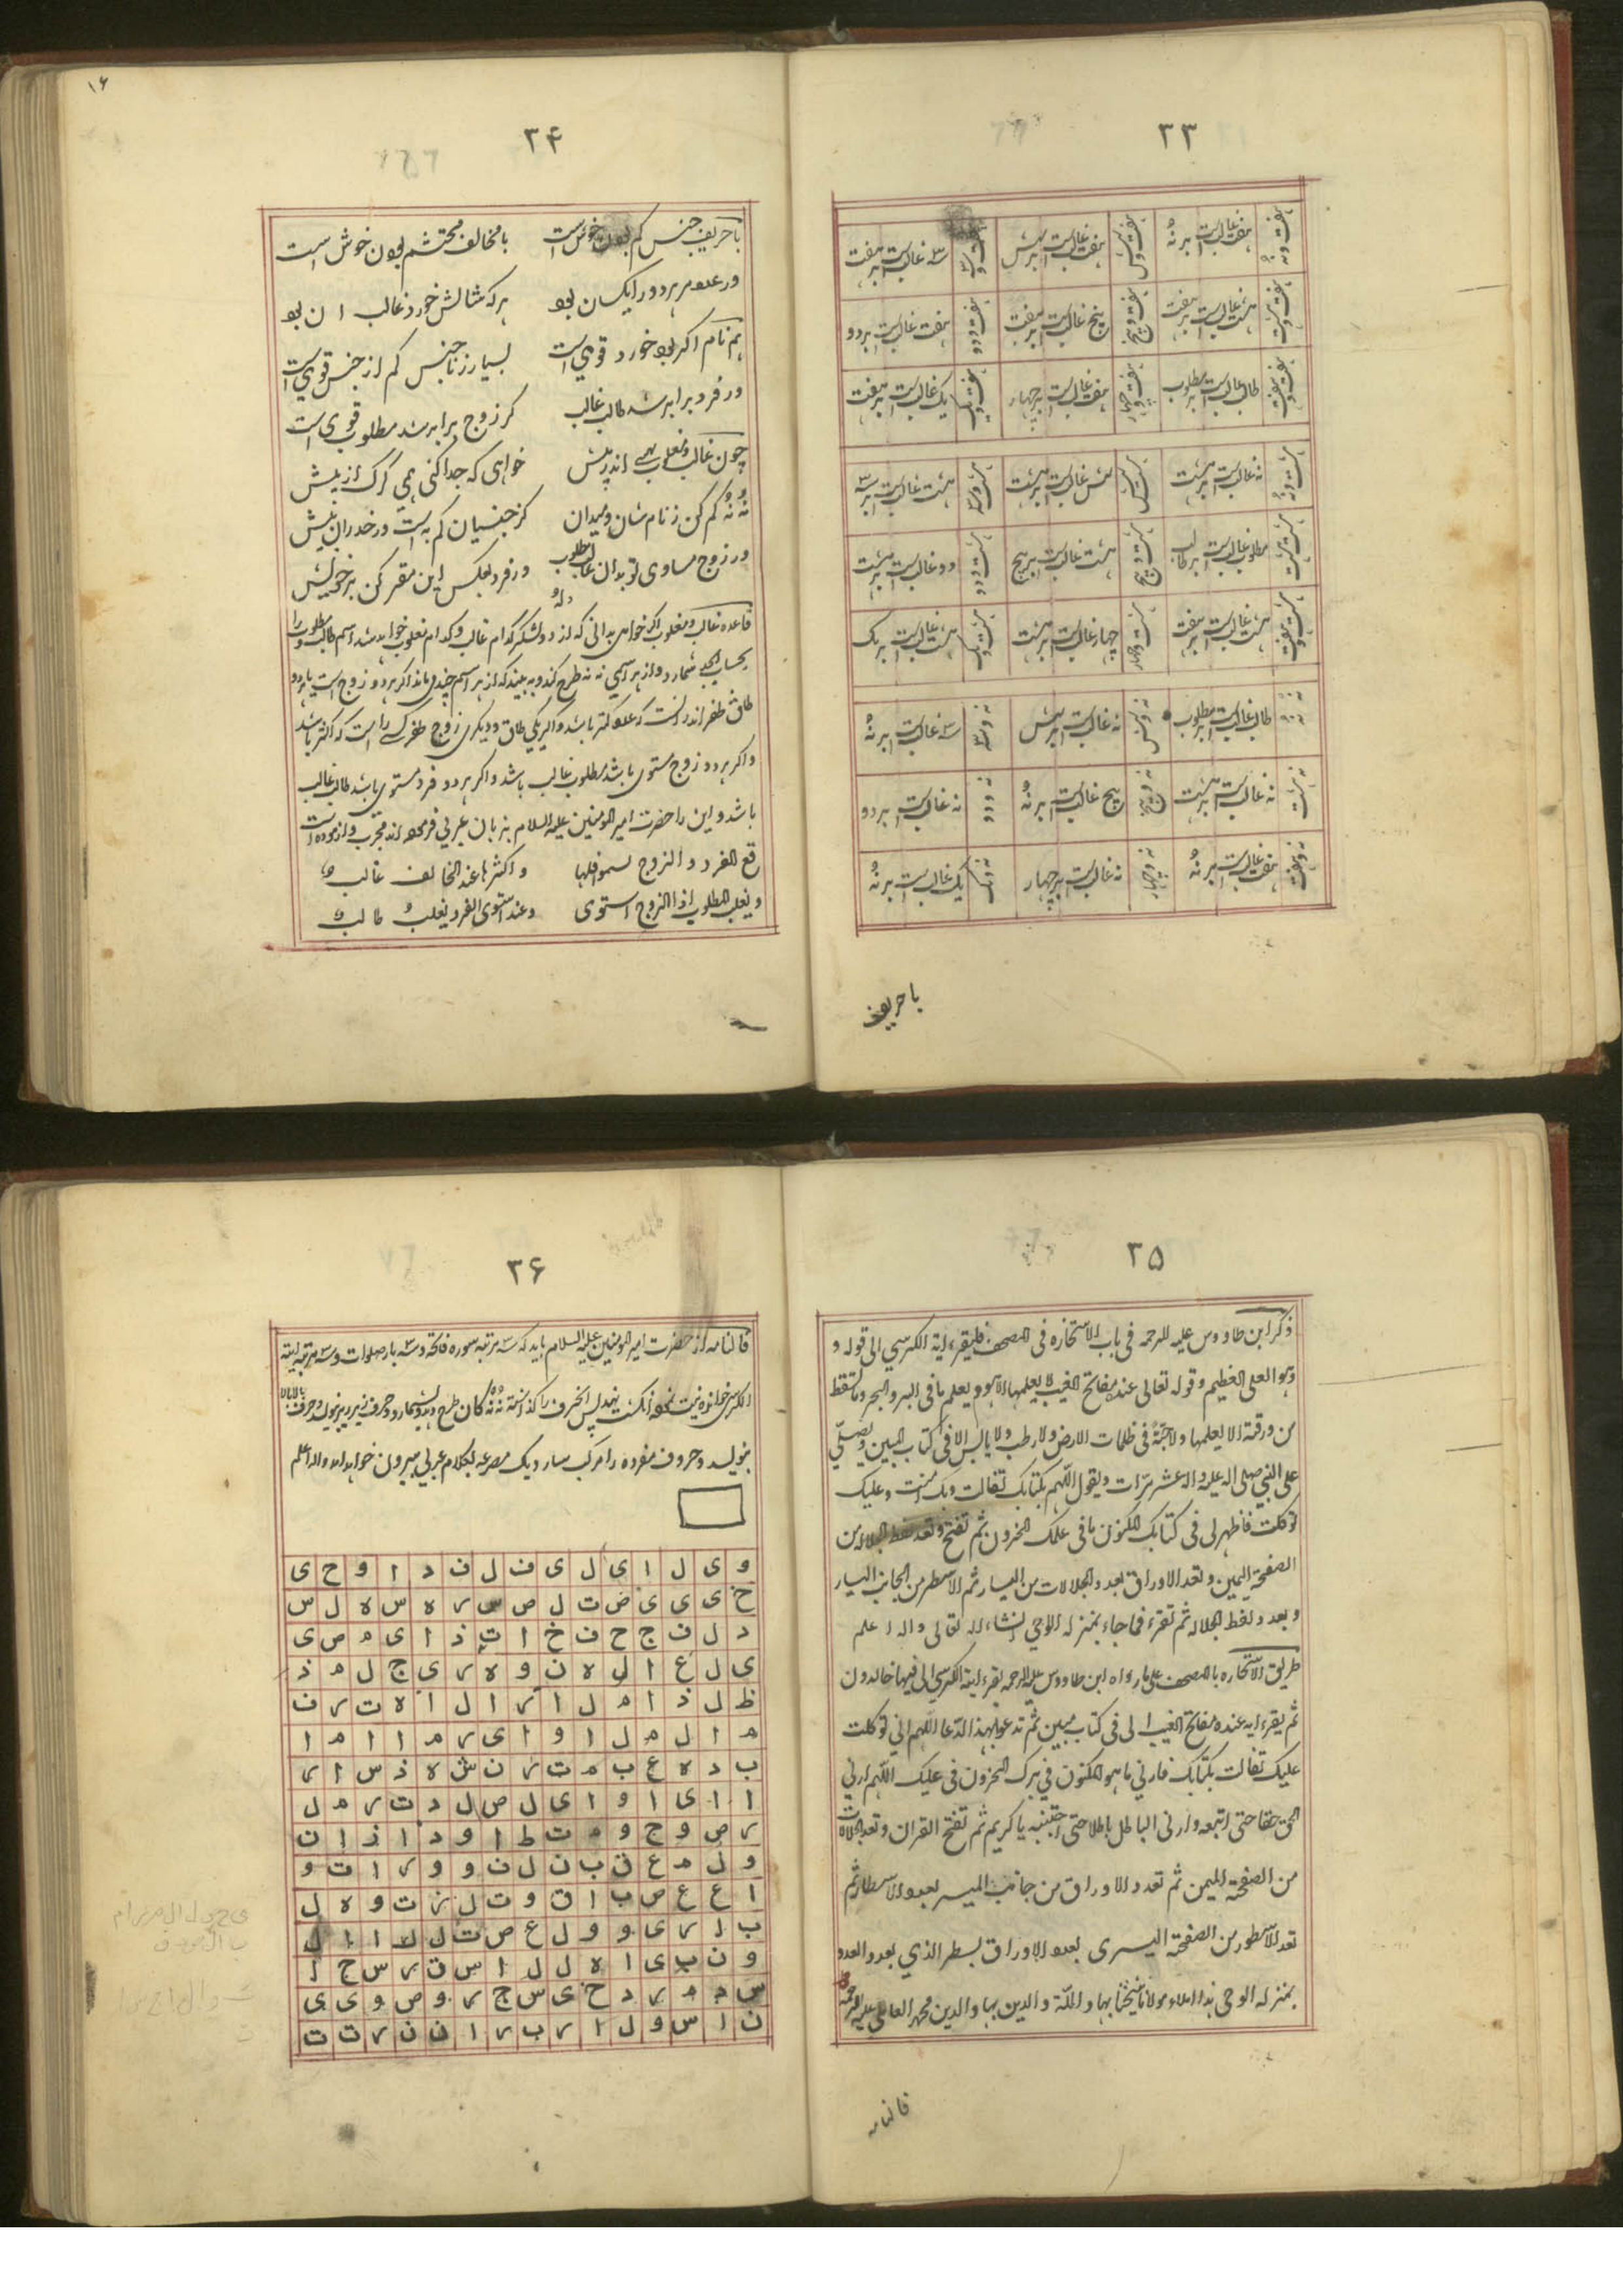 ۲۳
هفت و نه
هفت غالبست بر نهُ
هفت و شش
هفت غالبست بر شش
هفت و سه
سه غالبست بر هفت
هفت و هشت
هشت غالبست بر هفت
هفت و پنج
پنج غالبست بر هفت
هفت و دو
هفت غالبست بر دو
هفت و هفت
طالب غالبست بر مطلوب
هفت و چهار
هفت غالبست بر چهار
هفت و یک
یک غالبست بر هفت
هشت و نه
نه غالبست بر هشت
هشت و شش
شش غالبست بر هشت
هشت و سه
هشت غالبست بر سه
هشت و هشت
مطلوب غالبست بر طالب
هشت و پنج
هشت غالبست بر پنج
هشت و دو
دو غالبست بر هشت
هشت و هفت
هشت غالبست بر هفت
هشت و چهار
چهار غالبست بر هشت
هشت و یک
هشت غالبست بر یک
نه و نه
طالب غالبست بر مطلوب
نه و شش
نه غالبست بر شش
نه و سه
سه غالبست بر نهُ
نه و هشت
نه غالبست بر هشت
نه و پنج
پنج غالبست بر نهُ
نه و دو
نه غالبست بر دو
نه و هفت
هفت غالبست بر نهُ
نه و چهار
نه غالبست بر چهار
نه و یک
یک غالبست بر نهُ
با حریف
۱۶
۲۴
با حریف جنس کم بودن خوش است با مخالف محتشم بودن خوش است
ور عدد هر دو را یکسان بود هر که مثالش خورد غالب ان بود
هم نام اکر بود خورد قوی است بسیار ز ناجنس کم از جنس قوی است
ور فرد برابر شد طالب غالب کر زوج برابر شد مطلوب قوی است
چون غالب و مغلوب بهی اندر پیش خواهی که جدا کنی همی کرک از میش
نه نُه کم کن ز نام شان و میدان کز جنسیان کم به است ور خد ران بیش
ور زوج مساوی تو بدان غالب مطلوب ور فرد بعکس این مقرر کن بر خویش
قاعده غالب و مغلوب اکر خواهی بدانی که از دو لشکر کدام غالب و کدام مغلوب خواهد شد اسم طالب و مطلوب را
بحساب ابجد شمارد و از هر اسمی نه نه طرح کند و به بیند که از هر اسم چند می ماند اکر هر دو زوج است یا هر دو
طاق ظفر اندر است که عدد کمتر باشد و اکر یکی طاق و دیکری زوج ظفر کسی را است که اکثر باشد
و اکر هر دو زوج مستوی باشد مطلوب غالب باشد و اکر هر دو فرد مستوی باشد طالب غالب
باشد و این را حضرت امیر المومنین علیه السلام بزبان عربی فرموده اند مجرب و ازموده است
و اکثرها عند التخالف غالب
و یغلب المطلوب اذا الزوج استوی و عند استوی الفرد یغلب طالب
۲۵
ذکر ابن طاووس علیه الرحمه فی باب الاستخاره فی المصحف فلیقرء ایة الکرسی الی قوله و
و هو العلی العظیم و قوله تعالی عنده مفاتح الغیب لا یعلمها الا هو و یعلم ما فی البر و البحر و ما تسقط
من ورقة الا یعلمها و لا حبة فی ظلمات الارض و لا رطب و لا یابس الا فی کتاب المبین و یصلّی
علی النبی صلی اله علیه و اله عشر مرّات و یقول اللّهم بکتابک تفالت و بک امنت و علیک
توکلت فاظهر لی فی کتابک المکنون ما فی علمک المخزون ثم تفتح و تعد لفظ الجلاله من
الصفحة الیمین و تعد الاوراق بعدد الجلالات من الیسار ثم الاسطر من الجانب الیسار
و بعدد لفظ الجلاله ثم تقرء فما جاء بمنزله الوحی انشاء الله تعالی و اله اعلم
طریق الاستخاره بالمصحف علی ما رواه ابن طاووس علیه الرحمه یقرء ایة الکرسی الی فیها خالدون
ثم یقرء ایه عنده مفاتح الغیب الی فی کتاب مبین ثم تدعو بهذا الدّعا اللّهم انی توکلت
علیک تفالت بکتابک فارنی ما هو المکنون فی سرک المخزون فی علمک اللّهم ارنی
الحق حقا حتی اتبعه و ارنی الباطل باطلا حتی اجتنبه یا کریم ثم تفتح القران و تعد الجلالات
من الصفحة الیمین ثم تعدد الاوراق من جانب المیسر بعدد الاسطار ثم
تعد الاسطور من الصفحة الیسری بعدد الاوراق بسطر الذی بعد والعدد
بمنزله الوحی هذا املاء مولانا شیخنا بهاء الملّة و الدین بهاء الدین محمد العاملی علیه الرحمه
فالنامه
۲۶
فالنامه از حضرت امیر المومنین علیه السلام باید که سه مرتبه سوره فاتحه و سه بار صلوات و سه مرتبه ایة
الکرسی خوانده نیت نموده انکشت نهد پس انحرف را کذاشته نه نه کان طرح دهد و بشمارد و حرف زیر بنویسد و حرف بالا بالا
بنویسد و حروف مفرده را مرکب سازد یک مصرعه بکلام عربی بیرون خواهد امد و اله اعلم
و ی ل ا ی ل ی ف ل ف د ا و ح ی
خ ی ی ی ض ت ل ص س ر ه س ه ل س
د ل ف ج ح ف خ ا ت ذ ا ی م ص ی
ی ل ع ا ل ه ن و ه ر ی ج ل م ذ
ظ ل ذ ا م ل ا ر ا ل ا ه ت ر ف
م ا ل م ل ا و ا ی ر م ا ا م ا
ب د ه ع ب م ت ر ن ش ه ذ س ا ر
ا ا ی ا و ا ی ل ص ل د ت ر م ل
ر ص و ج و م ت ط ا و د ا ذ ا ن
و ل م ع ق ب ن ل ن و و ر ا ت و
ا ع ع ص ب ا ق و ت ل ز ت و ه ل
ب ا ر ی و و ل ع ص ت ل لا ا ا ل
و ن ب ی ا ه ل ل ا س ق ر س ج ا
س د م ر د خ ی س ج ر و ص و ی ی
ن ا س و ل ا ر ب ر ا ن ن ر ت ت